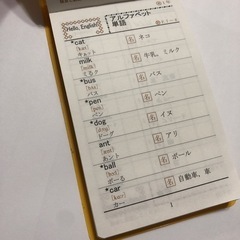 Hello, English!
アルファベット
単語
*cat
名 ネコ
キャット
milk
名 牛乳, ミルク
ミるク
*bus
名 バス
バス
*pen
名 ペン
ペン
*dog
名 イヌ
ドーグ
ant
名 アリ
あント
*ball
名 ボール
ボーる
*car
名 自動車, 車
カー
1